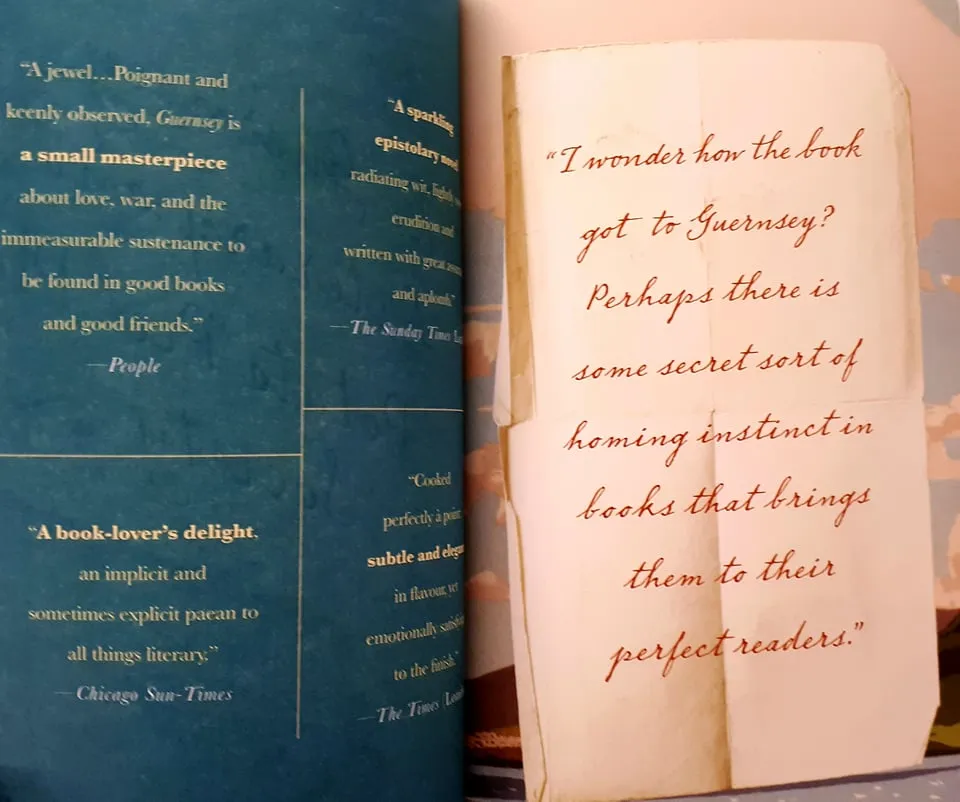 “A jewel…Poignant and
keenly observed, Guernsey is
a small masterpiece
about love, war, and the
immeasurable sustenance to
be found in good books
and good friends.”
—People
“A book-lover’s delight,
an implicit and
sometimes explicit paean to
all things literary.”
—Chicago Sun-Times
“A sparkling
epistolary
radiating wit,
erudition and
written with great
and aplomb.”
—The Sunday Times
“Cooked
perfectly à point,
subtle and
in flavour, yet
emotionally
to the finish.”
—The Times
“I wonder how the book
got to Guernsey?
Perhaps there is
some secret sort of
homing instinct in
books that brings
them to their
perfect readers.”